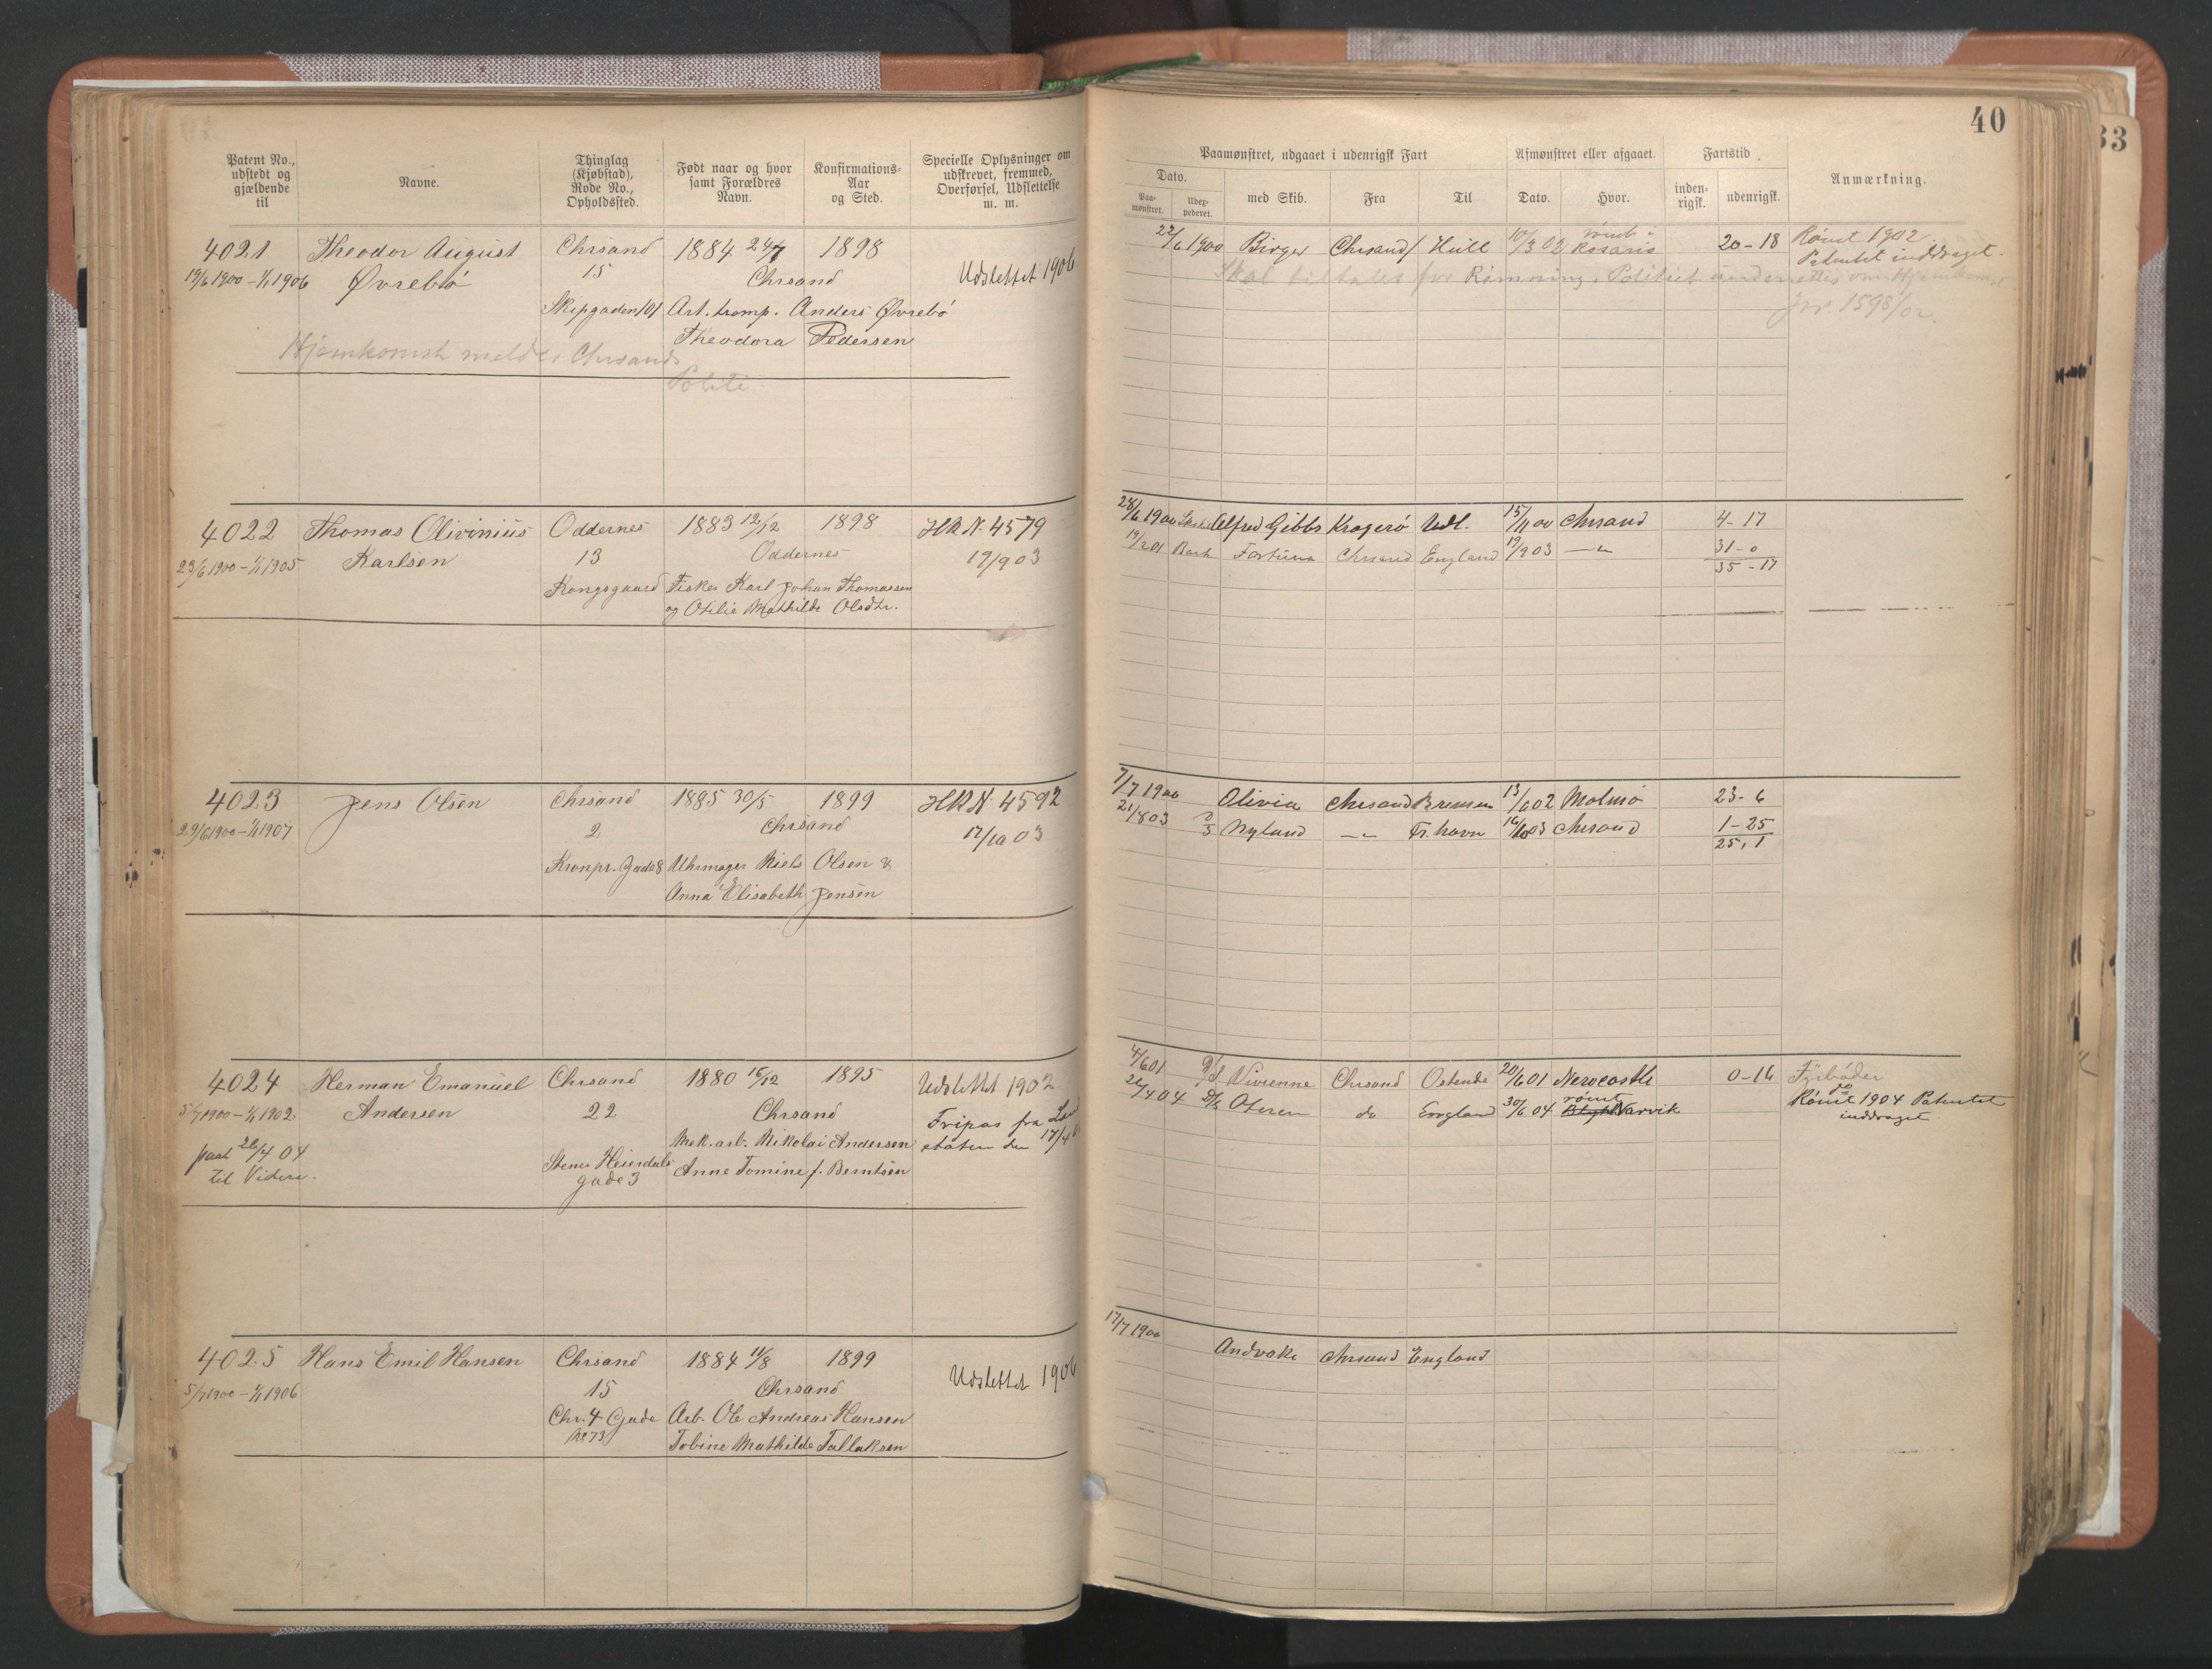 Patent No., udstedt og gjældende til
Navne.
Thinglag (Kjøbstad), Rode No., Opholdssted.
Født naar og hvor samt Forældres Navn.
Konfirmations-Aar og Sted.
Specielle Oplysninger om udskrevet, fremmed, Overførsel, Udslettelse m. m.
4021 Theodor August Chrsand 1884 24/7 1898
19/6 1900 – 1/1 1906 Øvrebö 15 Chrsand Udslettet 1906
Skipgaden 101 Art. tromp. Anders Øvrebö
Theodora Pedersen
Hjemkomst meldes Chrsands
Politi
4022 Thomas Olivinius Oddernes 1883 12/12 1898 HRN. 4579
23/6 1900 – 1/1 1905 Karlsen 13 Oddernes 17/9 03
Kongsgaard Fisker Karl Johan Thomassen
og Otilie Mathilde Olsdtr.
4023 Jens Olsen Chrsand 1885 30/5 1899 HRN. 4592
29/6 1900 – 1/1 1907 2 Chrsand 17/10 03
Kronpr. Gade 8 Uhrmager Niels Olsen &
Anna Elisabeth Jensen
4024 Herman Emanuel Chrsand 1880 15/12 1895 Udslettet 1902
5/7 1900 – 1/1 1902 Andersen 22 Chrsand Fripas fra
Mek. arb. Nikolai Andersen staten den 17/4
paat 26/4 04 Stener Heierdals Anne Tomine f. Berntsen
til Videre. gade 3
4025 Hans Emil Hansen Chrsand 1884 11/8 1899
5/7 1900 – 1/1 1906 15 Chrsand Udslettet 1906
Chr. 4 Gade Arb. Ole Andreas Hansen
No 73 Tobine Mathilde Tallaksen
40
33
Paamønstret, udgaaet i udenrigsk Fart
Afmønstret eller afgaaet.
Fartstid
Anmærkning.
Dato.
Paa-mønstret. Udex-pederet. med Skib. Fra Til Dato. Hvor. inden-rigsk. udenrigsk.
22/6 1900 Birger Chrsand Hull 10/3 02 römt i Rosario 20–18 Römt 1902
Patentet inddraget.
Skal tiltales for Rømning. Politiet underrettes om Hjemkomst
Jnr. 1598/02.
28/6 1900 Alfred Gibbs Kragerö Udl. 15/11 00 Chrsand 4–17
19/2 01 Bark Fortuna Chrsand England 19/9 03 –"– 31–0
35–17
7/7 1900 Olivia Chrsand Bremen 13/6 02 Malmö 23–6
21/8 03 D/S Nyland –"– Fr. havn 16/10 03 Chrsand 1–25
25,1
4/6 01 D/S Vivienne Chrsand Ostende 20/6 01 Newcastle 0–16 Fyrböder
26/4 04 D/S Oteren do England 30/6 04 römt Narvik do Römt 1904 Patentet
inddraget
17/7 1900
Andvake Chrsand England